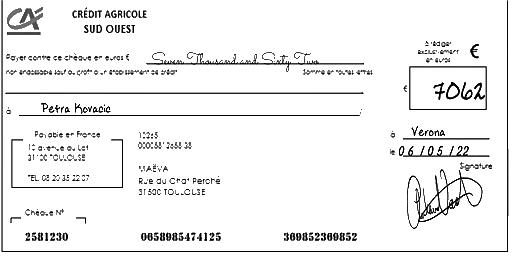 CA
CRÉDIT AGRICOLE
SUD OUEST
Payer contre ce chèque en euros € Seven Thousand and Sixty Two
non endossable sauf au profit d'un établissement de crédit Somme en toutes lettres
à rédiger
exclusivement
en euros
€
€ 7062
à Petra Kovacic
Payable en France
10 avenue du Lot
31100 TOULOUSE
TEL. 08 20 35 22 07
MAËVA
Rue du Chat Perché
31500 TOULOUSE
à Verona
le 06/05/22
Signature
Chèque N°
2581230 0658985474125 369852369852